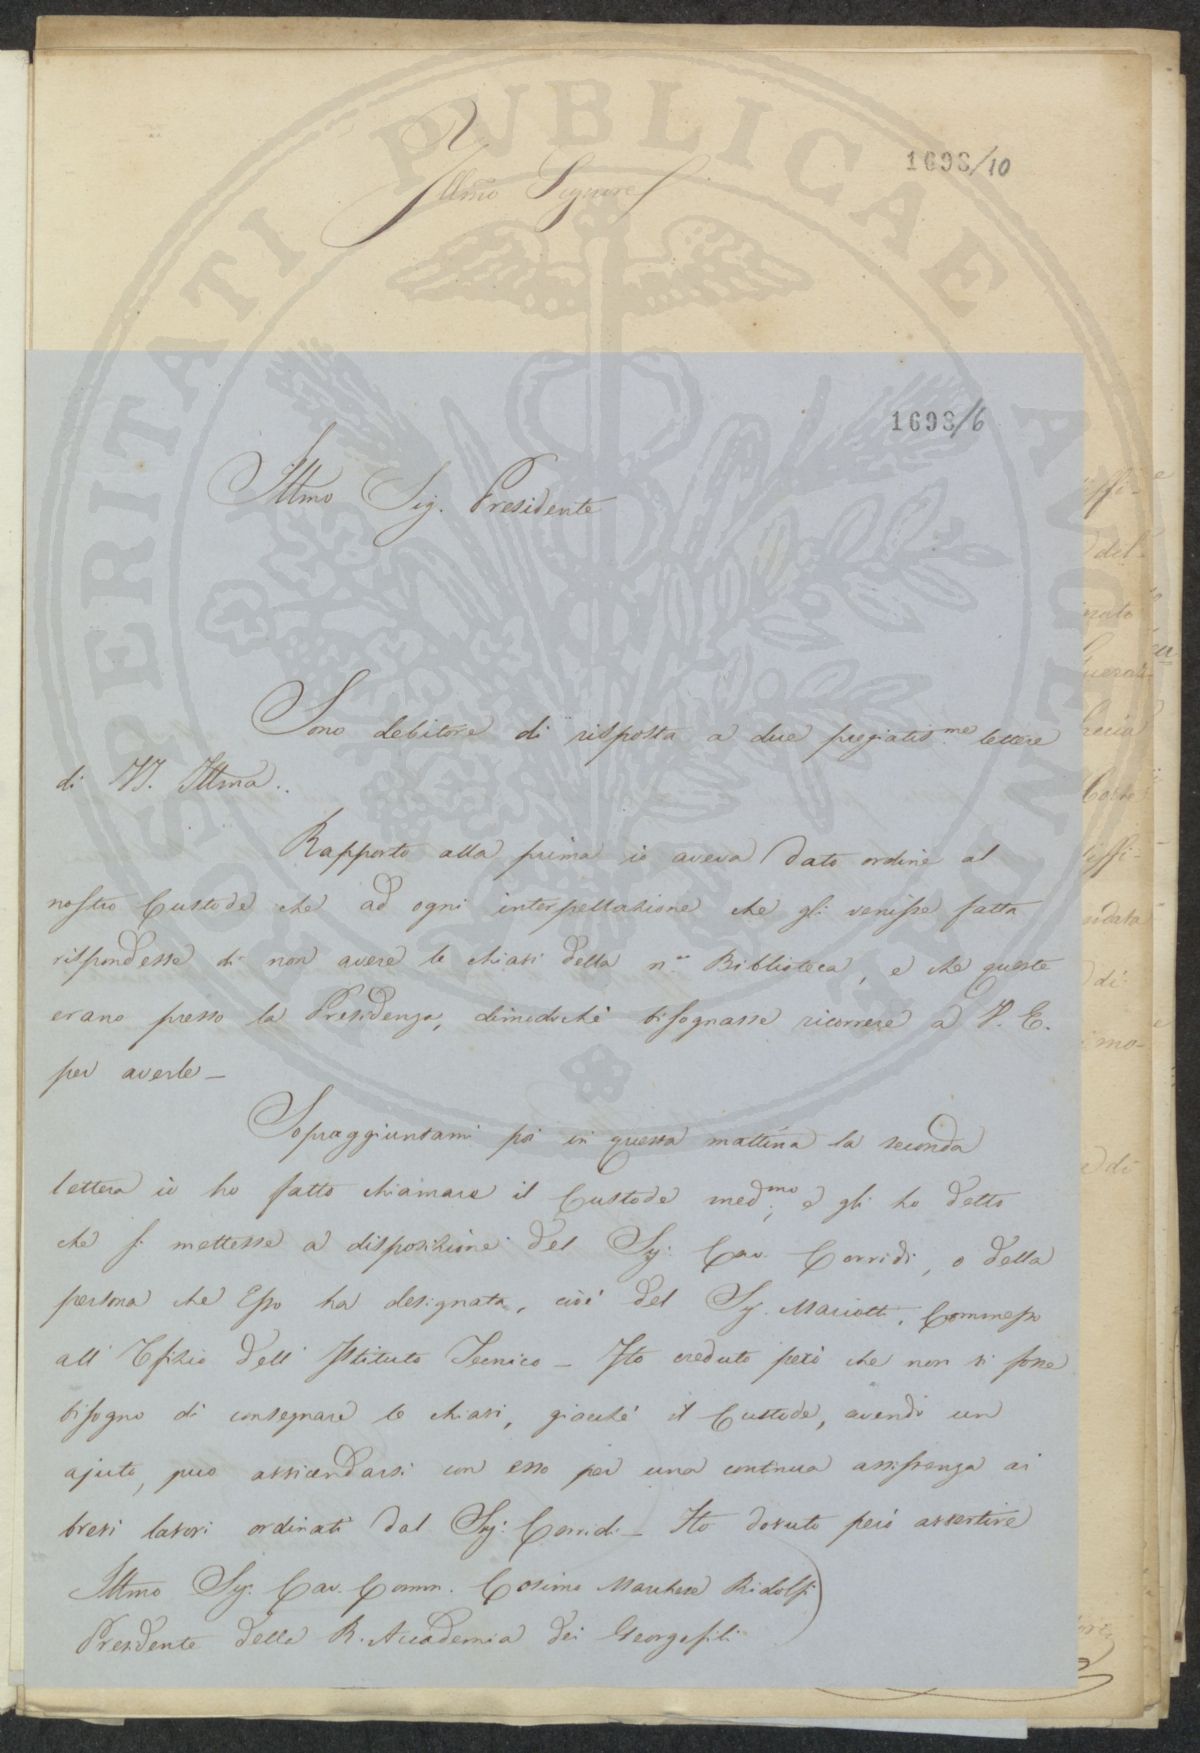 1698/10
Illmo Signore
1698/6
Illmo Sig. Presidente
Sono debitore di risposta a due pregiatis.me lettere
di VS. Illma.
Rapporto alla prima io aveva dato ordine al
nostro Custode che ad ogni interpellazione che gli venisse fatta
rispondesse di non avere le chiavi della n.ra Biblioteca, e che queste
erano presso la Presidenza, dimodochè bisognasse ricorrere a V. E.
per averle —
Sopraggiuntami poi in questa mattina la seconda
lettera io ho fatto chiamare il Custode med.mo, e gli ho detto
che si mettesse a disposizione del Sig. Cav. Corridi, o della
persona che Esso ha designata, cioè del Sig. Mariotti, Commesso
all' Ufizio dell' Istituto Tecnico — Ho creduto però che non vi fosse
bisogno di consegnare le chiavi, giacchè il Custode, avendo un
ajuto, può vicendarsi con esso per una continua assistenza ai
brevi lavori ordinati dal Sig. Corridi — Ho dovuto però avvertire
Illmo Sig. Cav. Comm. Cosimo Marchese Ridolfi
Presidente della R. Accademia dei Georgofili
PROSPERITATI PVBLICAE AVGENDAE